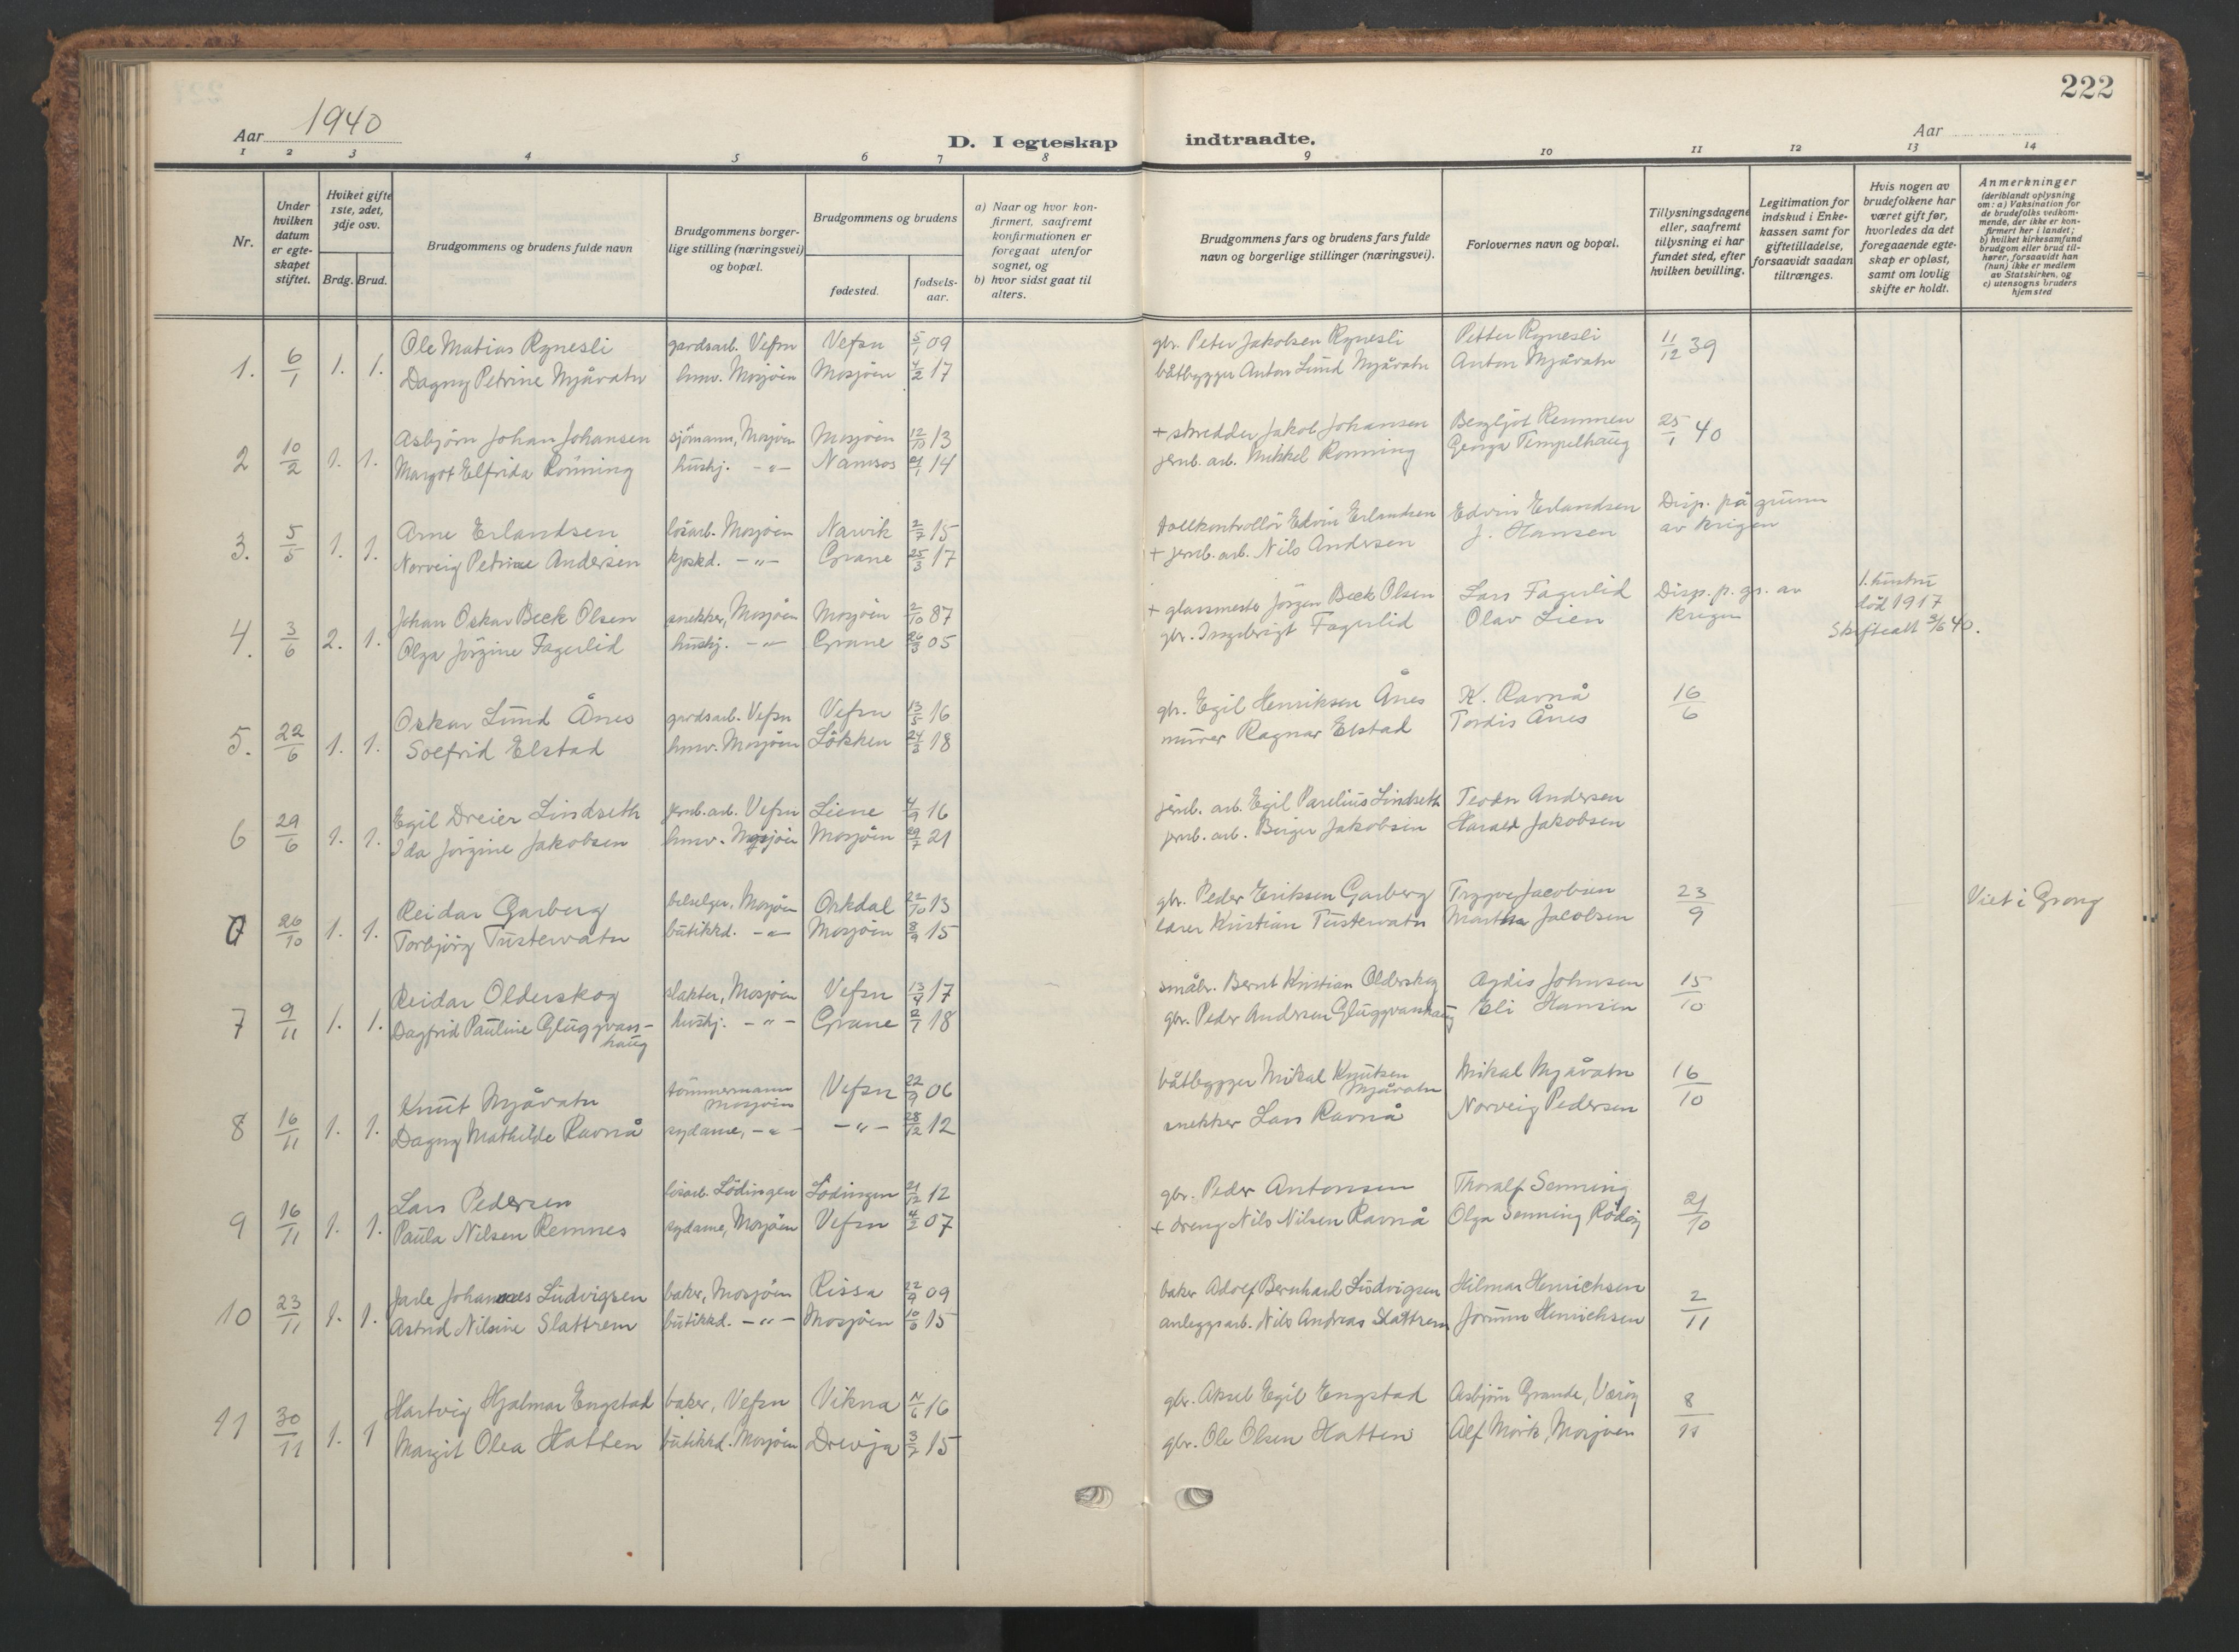 222
Aar 1940
D. I egteskap indtraadte.
Aar
1 2 3 4 5 6 7 8 9 10 11 12 13 14
Nr.
Under hvilken datum er egteskapet stiftet.
Hviket gifte 1ste, 2det, 3dje osv.
Brdg. Brud.
Brudgommens og brudens fulde navn
Brudgommens borgerlige stilling (næringsvei) og bopæl.
Brudgommens og brudens
fødested.
fødselsaar.
a) Naar og hvor konfirmert, saafremt konfirmationen er foregaat utenfor sognet, og
b) hvor sidst gaat til alters.
Brudgommens fars og brudens fars fulde navn og borgerlige stillinger (næringsvei).
Forlovernes navn og bopæl.
Tillysningsdagene eller, saafremt tillysning ei har fundet sted, efter hvilken bevilling.
Legitimation for indskud i Enkekassen samt for giftetilladelse, forsaavidt saadan tiltrænges.
Hvis nogen av brudefolkene har været gift før, hvorledes da det foregaaende egteskap er opløst, samt om lovlig skifte er holdt.
Anmerkninger
(deriblandt oplysning om: a) Vaksination for de brudefolks vedkommende, der ikke er konfirmert her i landet;
b) hvilket kirkesamfund brudgom eller brud tilhører, forsaavidt han (hun) ikke er medlem av Statskirken, og
c) utensogns bruders hjemsted
1. 6/1 1. 1. Ole Matias Rynesli gardsarb. Vefsn Vefsn 5/1 09 gbr. Peter Jakobsen Rynesli Petter Rynesli 11/12 39
Dagny Petrine Mjåvatn hmv. Mosjøen Mosjøen 4/2 17 båtbygger Anton Lund Mjåvatn Anton Mjåvatn
2 10/2 1. 1. Asbjørn Johan Johansen sjømann, Mosjøen Mosjøen 12/10 13 + skredder Jakob Johansen Bergljot Remmen 25/1 40
Margot Elfrida Rønning hushj. -"- Namsos 21/1 14 jernb. arb. Mikkel Rønning Georga Tempelhaug
3. 5/5 1. 1. Arne Erlandsen løsarb. Mosjøen Narvik 2/7 15 tollkontrollør Edvin Erlandsen Edvin Erlandsen Disp. på grunn
Norveig Petrine Andersen kjøskd. -"- Grane 25/3 17 + jernb. arb. Nils Andersen J. Hansen av krigen
4. 3/6 2. 1. Johan Oskar Beck Olsen snekker, Mosjøen Mosjøen 2/10 87 + glassmester Jørgen Beck Olsen Lars Fagerlid Disp. p. gr. av 1. hustru
Olga Jørgine Fagerlid hushj. -"- Grane 26/3 05 gbr. Ingebrigt Fagerlid Olav Lien krigen død 1917
Skifteatt 3/6 40.
5. 22/6 1. 1. Oskar Lund Ånes gardsarb. Vefsn Vefsn 13/5 16 gbr. Egil Henriksen Ånes K. Ravnå 16/6
Solfrid Elstad hmv. Mosjøen Løkken 24/3 18 murer Ragnar Elstad Tordis Ånes
6 29/6 1. 1. Egil Dreier Lindseth jernb. arb. Vefsn Liene 4/9 16 jernb. arb. Egil Parelius Lindseth Teodor Andersen
Ida Jørgine Jakobsen hmv. Mosjøen Mosjøen 29/7 21 jernb. arb. Birger Jakobsen Harald Jakobsen
0 26/10 1. 1. Reidar Garberg Mosjøen Orkdal 22/10 13 gbr. Peder Eriksen Garberg Trygve Jacobsen 23/9 Viet i Grong
Torbjørg Tustervatn butikkd. -"- Mosjøen 8/9 15 lærer Kristian Tustervatn Martha Jacobsen
7 9/11 1. 1. Reidar Olderskog slakter, Mosjøen Vefsn 13/4 17 småbr. Bernt Kristian Olderskog Aydis Johnsen 15/10
Dagfrid Pauline Gluggvashaug hushj. -"- Grane 2/1 18 gbr. Peder Andersen Gluggvashaug Eli Hansen
8 16/11 1. 1. Knut Mjåvatn tømmermann Mosjøen Vefsn 22/9 06 båtbygger Mikal Knutsen Mjåvatn Mikal Mjåvatn 16/10
Dagny Mathilde Ravnå sydame, -"- -"- 28/12 12 snekker Lars Ravnå Norveig Pedersen
9 16/11 1. 1. Lars Pedersen løsarb. Lødingen Lødingen 21/12 12 gbr. Peder Antonsen Thoralf Senning 21/10
Paula Nilsen Remnes sydame, Mosjøen Vefsn 4/2 07 + dreng Nils Nilsen Ravnå Olga Senning Rødøy
10 23/11 1. 1. Jarle Johannes Ludvigsen baker, Mosjøen Rissa 22/9 09 baker Adolf Bernhard Ludvigsen Hilmar Henrichsen 2/11
Astrid Nilsine Slattrem butikkd. -"- Mosjøen 10/6 15 anleggsarb. Nils Andreas Slattrem Jorunn Henrichsen
11 30/11 1. 1 Hartvig Hjalmar Engstad baker, Vefsn Vikna 16 gbr. Aksel Egil Engstad Asbjørn Grande, Værøy 8/11
Margit Olea Hatten butikkd. Mosjøen Drevja 3/7 15 gbr. Ole Olsen Hatten Alf Mørk, Mosjøen